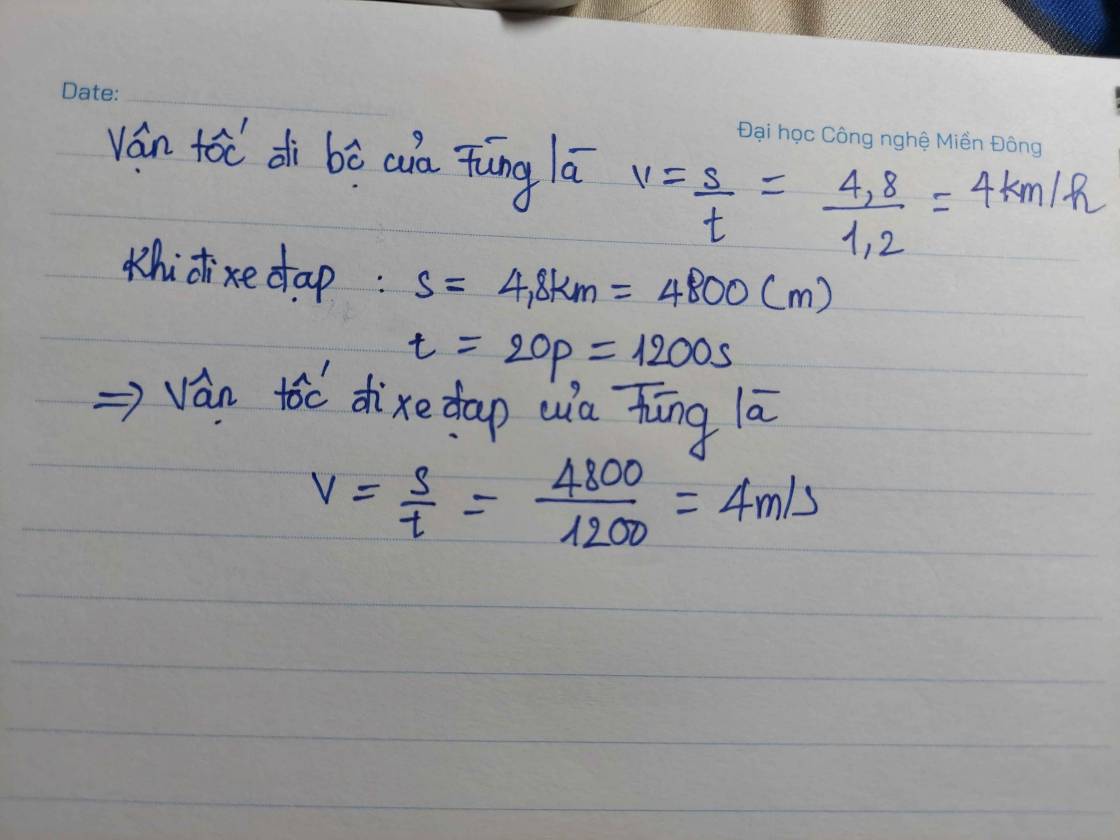 Date:
Đại học Công nghệ Miền Đông
Vận tốc đi bộ của Tùng là v = s/t = 4,8/1,2 = 4km/h
Khi đi xe đạp : s = 4,8km = 4800 (m)
t = 20p = 1200s
=> Vận tốc đi xe đạp của Tùng là
v = s/t = 4800/1200 = 4m/s